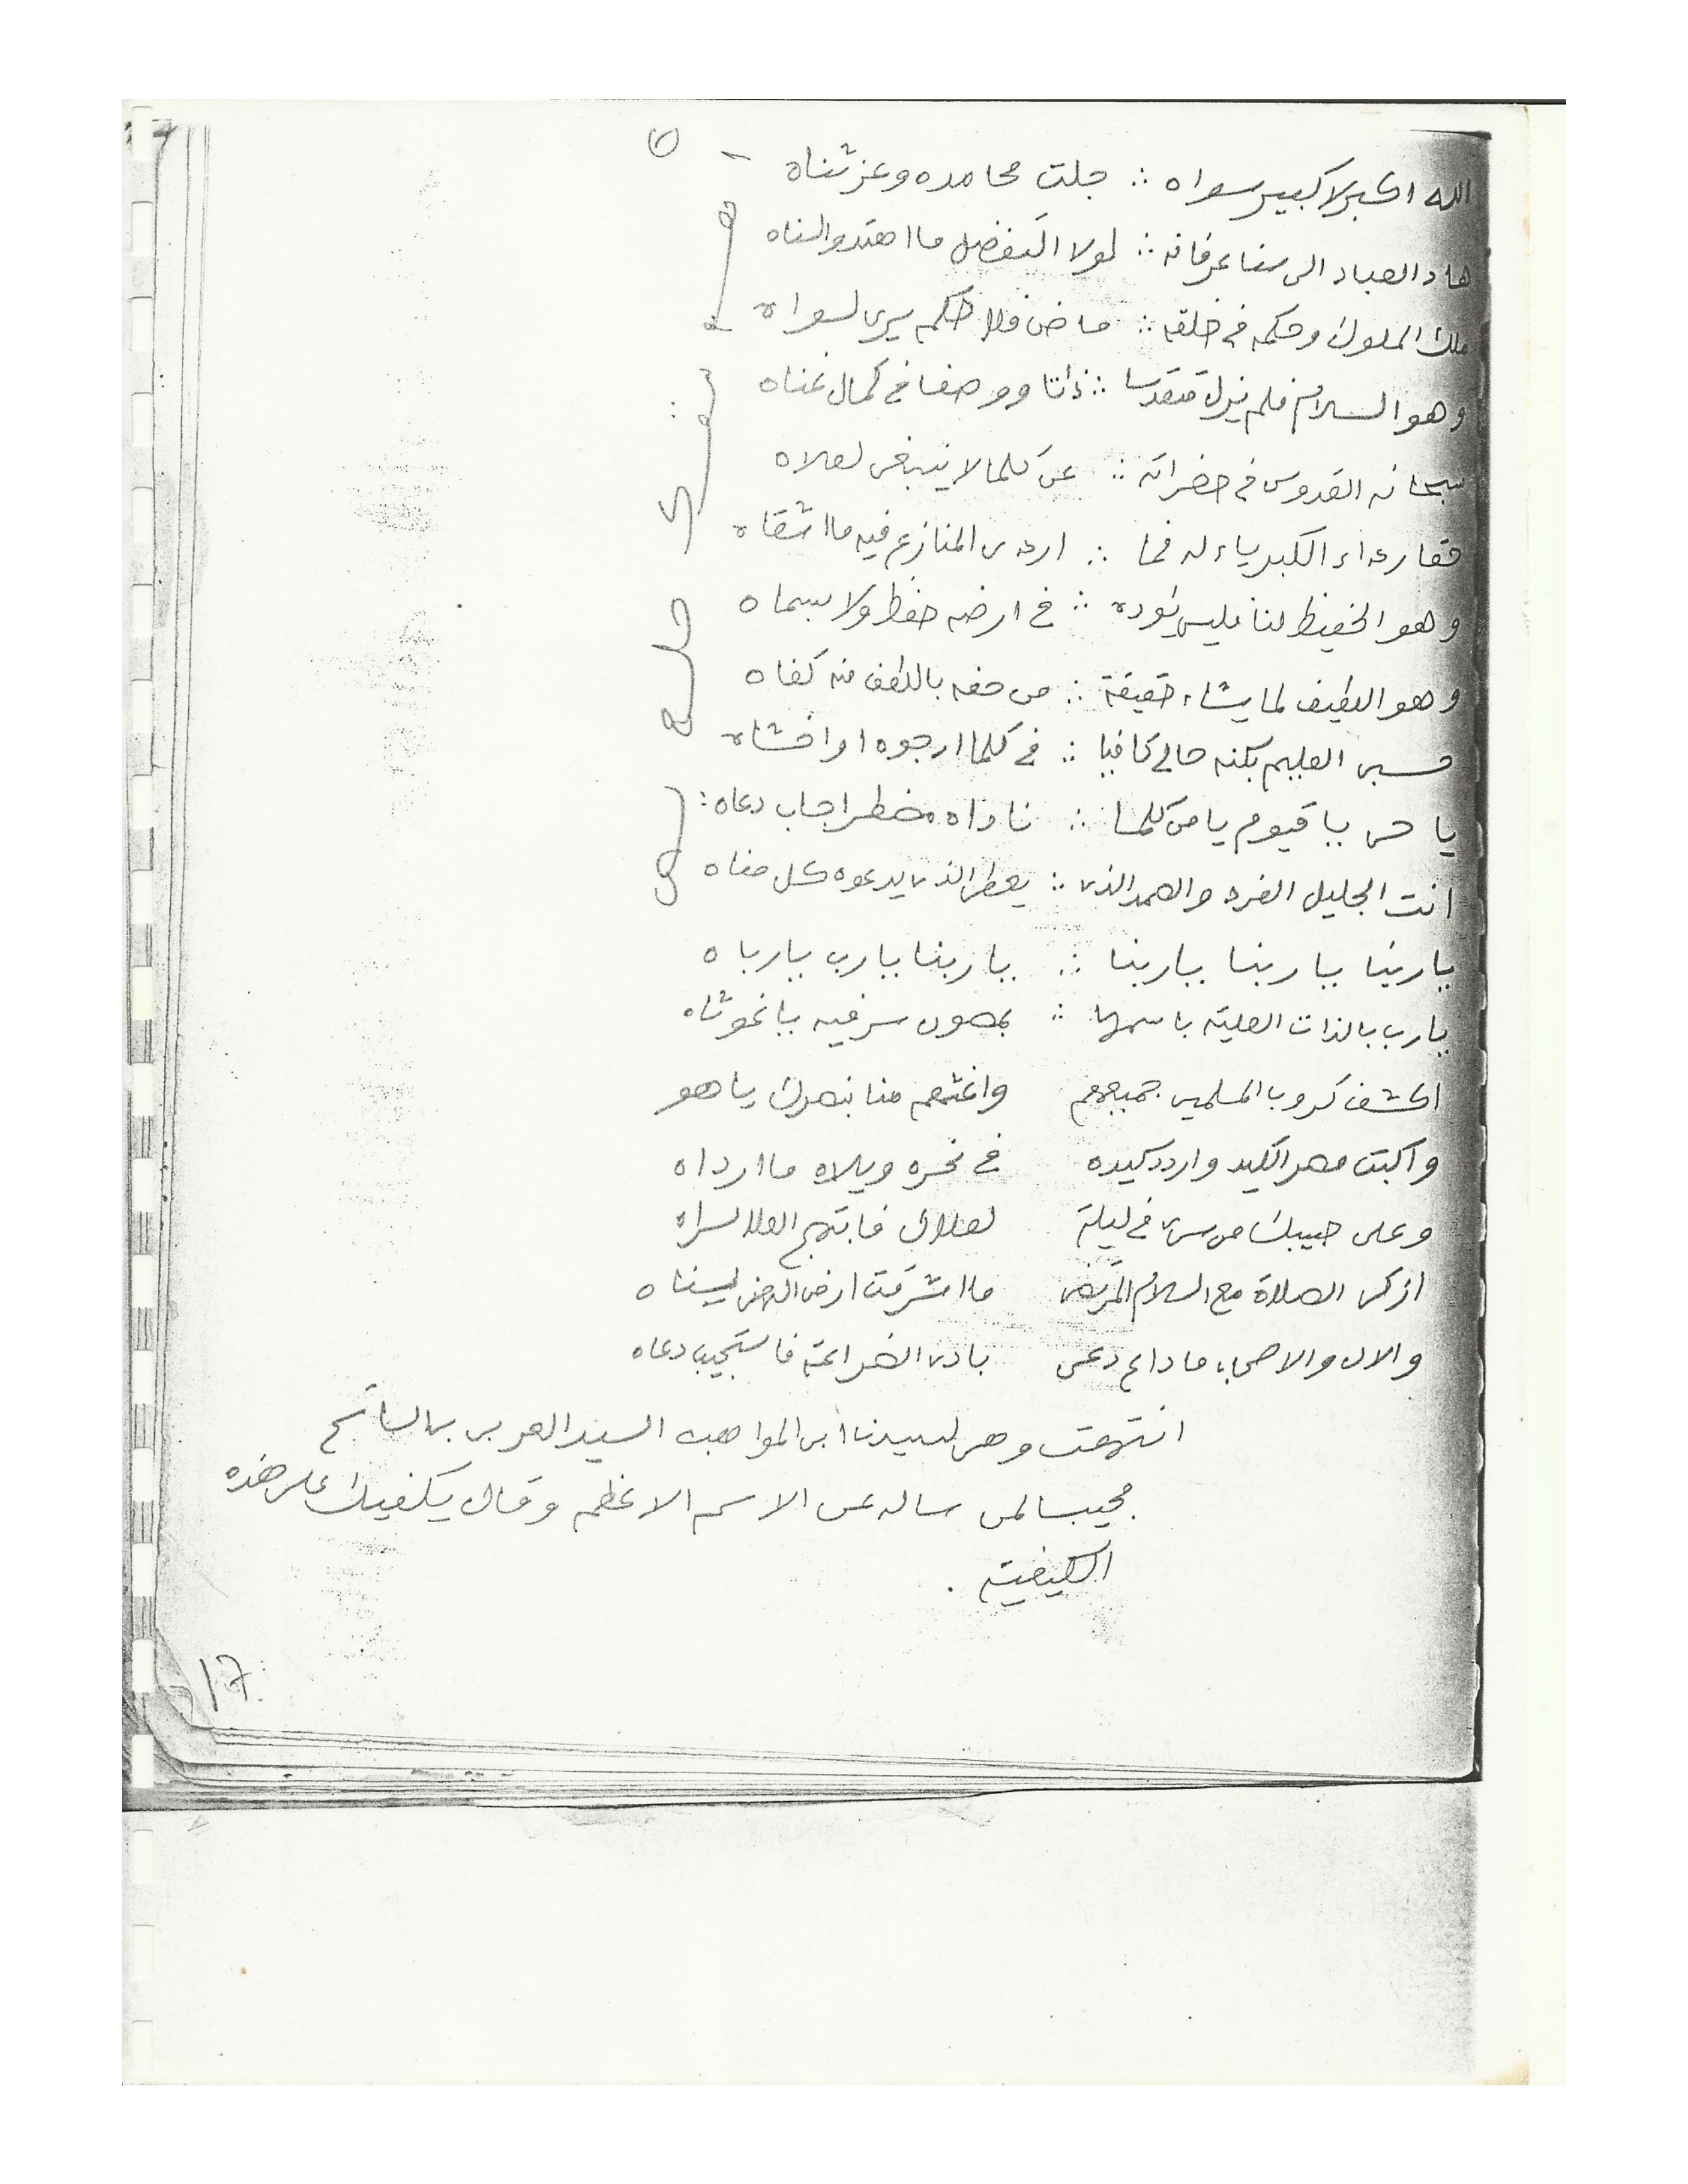 الله اكبر لا كبير سواه ∴ جلت محامده وعز ثناه
هاد العباد الى سنا عرفانه ∴ لولا التفضل ما اهتدوا لسناه
ملك الملوك وحكمه في خلقه ∴ ماض فلا حكم يرى لسواه
وهو السلام فلم يزل متقدسا ∴ ذاتا ووصفا في كمال غناه
سبحانه القدوس في حضراته ∴ عن كلما لا ينبغي لعلاه
رداء الكبرياء له فما ∴ اردى المنازع فيه ما اشقاه
وهو الحفيظ لنا فليس يؤده ∴ في ارضه حفظ ولا بسماه
وهو اللطيف لما يشاء حقيقة ∴ من حفه باللطف منه كفاه
حسبي العليم بكنه حالي كافيا ∴ في كلما ارجوه او اخشاه
يا حي يا قيوم يا من كلما ∴ ناداه مضطر اجاب دعاه :
انت الجليل الفرد والصمد الذي ∴ يعطي الذي يدعوه كل مناه
يا ربنا يا ربنا يا ربنا ∴ يا ربنا يا رب يا رباه
يا رب بالذات العلية باسمها ∴ بمصون سر فيه يا غوثاه
اكشف كروب المسلمين جميعهم واغثهم منا بنصرك يا هو
واكبت مصر الكيد واردد كيده في نحره وبلاه ما ارداه
وعلى حبيبك من سرى في ليلة لعلاك فابتهج العلا لسراه
ازكى الصلاة مع السلام المرتضى ما اشرقت ارض لسناه
والال والاصحاب ما داع دعى بادي الضراعة فاستجيب دعاه
انتهت وهي لسيدنا ابي المواهب السيد العربي بن السائح
مجيبا لمن ساله عن الاسم الاعظم وقال يكفيك على هذه
الكيفية .
17